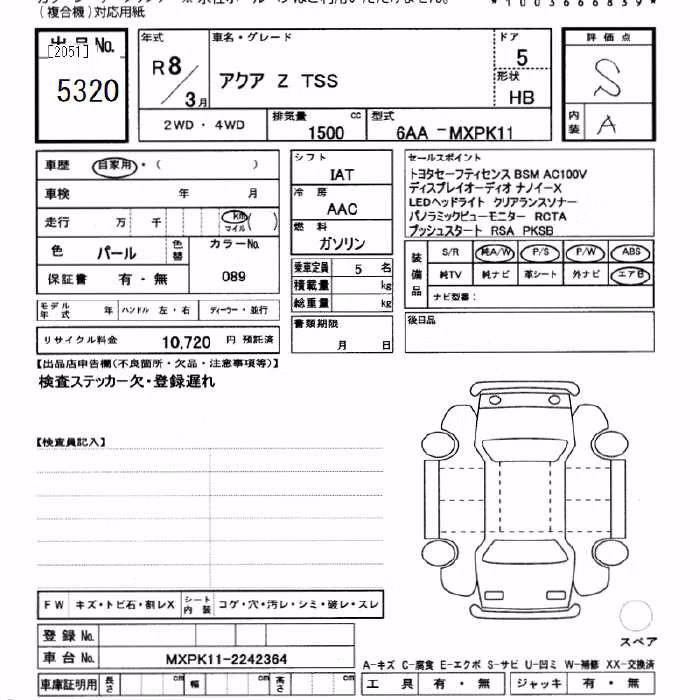 (複合機)対応用紙
*1003666839*
出品No.
[2051]
5320
年式
R8/3月
車名・グレード
アクア Z TSS
ドア
5
形状
HB
評価点
S
内装
A
2WD・4WD
排気量
1500
cc
型式
6AA -MXPK11
車歴
自家用・(  )
車検
年 月
走行
万 千
km
マイル
( )
色
パール
色替
カラーNo.
089
保証書
有・無
モデル年式
年
ハンドル
左・右
ディーラー・並行
リサイクル料金
10,720
円 預託済
シフト
IAT
冷房
AAC
燃料
ガソリン
乗車定員
5 名
積載量
kg
総重量
kg
書類期限
月 日
セールスポイント
トヨタセーフティセンス BSM AC100V
ディスプレイオーディオ ナノイーX
LEDヘッドライト クリアランスソナー
パノラミックビューモニター RCTA
プッシュスタート RSA PKSB
装備品
S/R 純A/W P/S P/W ABS
純TV 純ナビ 革シート 外ナビ エアB
ナビ型番:
後日品
【出品店申告欄(不良箇所・欠品・注意事項等)】
検査ステッカー欠・登録遅れ
【検査員記入】
FW
キズ・トビ石・割レX
シート内装
コゲ・穴・汚レ・シミ・破レ・スレ
登録No.
車台No.
MXPK11-2242364
車庫証明用
長さ
cm
幅
cm
高さ
cm
スペア
A-キズ C-腐食 E-エクボ S-サビ U-凹ミ W-補修 XX-交換済
工具
有・無
ジャッキ
有・無